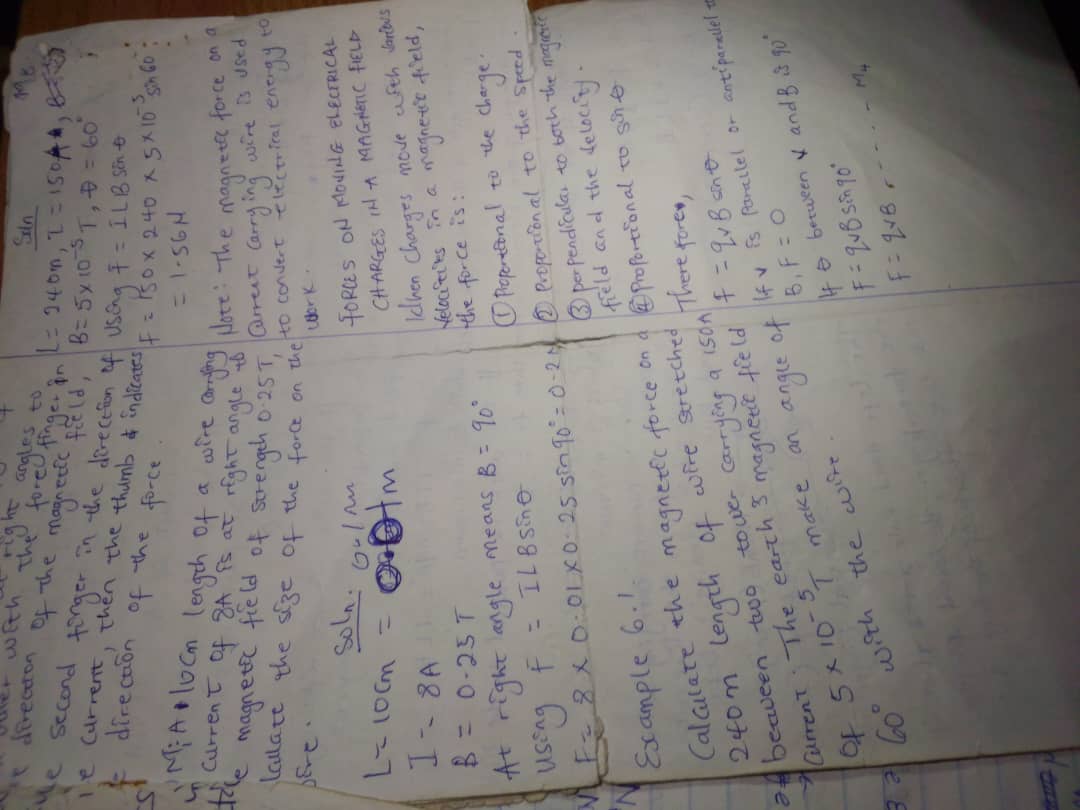 direction with the right angles to
Second of the forefinger in
Current, finger in the magnetic field,
direction then the direction of
of the thumb & indicates
force.
M: A 10Cm length of a wire carrying
Current of 8A is at right angle to
magnetic field of strength 0.25T,
Calculate the size of the force on the
wire.
Soln.
L = 10Cm = 0.1m
I = 8A
B = 0.25T
At right angle means B = 90°
Using F = ILBsinθ
F = 8 X 0.01 X 0.25 sin90° = 0.2N
Example 6.1
Calculate the magnetic force on a
240m length of wire stretched
between two tower carrying a 150A
Current. The earth's magnetic field
Of 5 x 10⁻⁵T make an angle of
60° with the wire.
Soln
L = 240m, I = 150A,
B = 5x10⁻⁵T, θ = 60°
Using F = ILBsinθ
F = 150 x 240 x 5x10⁻⁵ sin60°
= 1.56N
Note: The magnetic force on a
Current carrying wire is used
to convert electrical energy to
work.
FORCES ON MOVING ELECTRICAL
CHARGES IN A MAGNETIC FIELD
When charges move with various
velocities in a magnetic field,
the force is:
① Proportional to the charge.
② Proportional to the speed.
③ perpendicular to both the magnetic
field and the velocity.
④ Proportional to sin θ
Therefore,
F = qvB sinθ
If v is parallel or antiparallel to
B, F = 0
If θ between v and B is 90°
F = qvBsin90°
F = qvB . - - - - M4